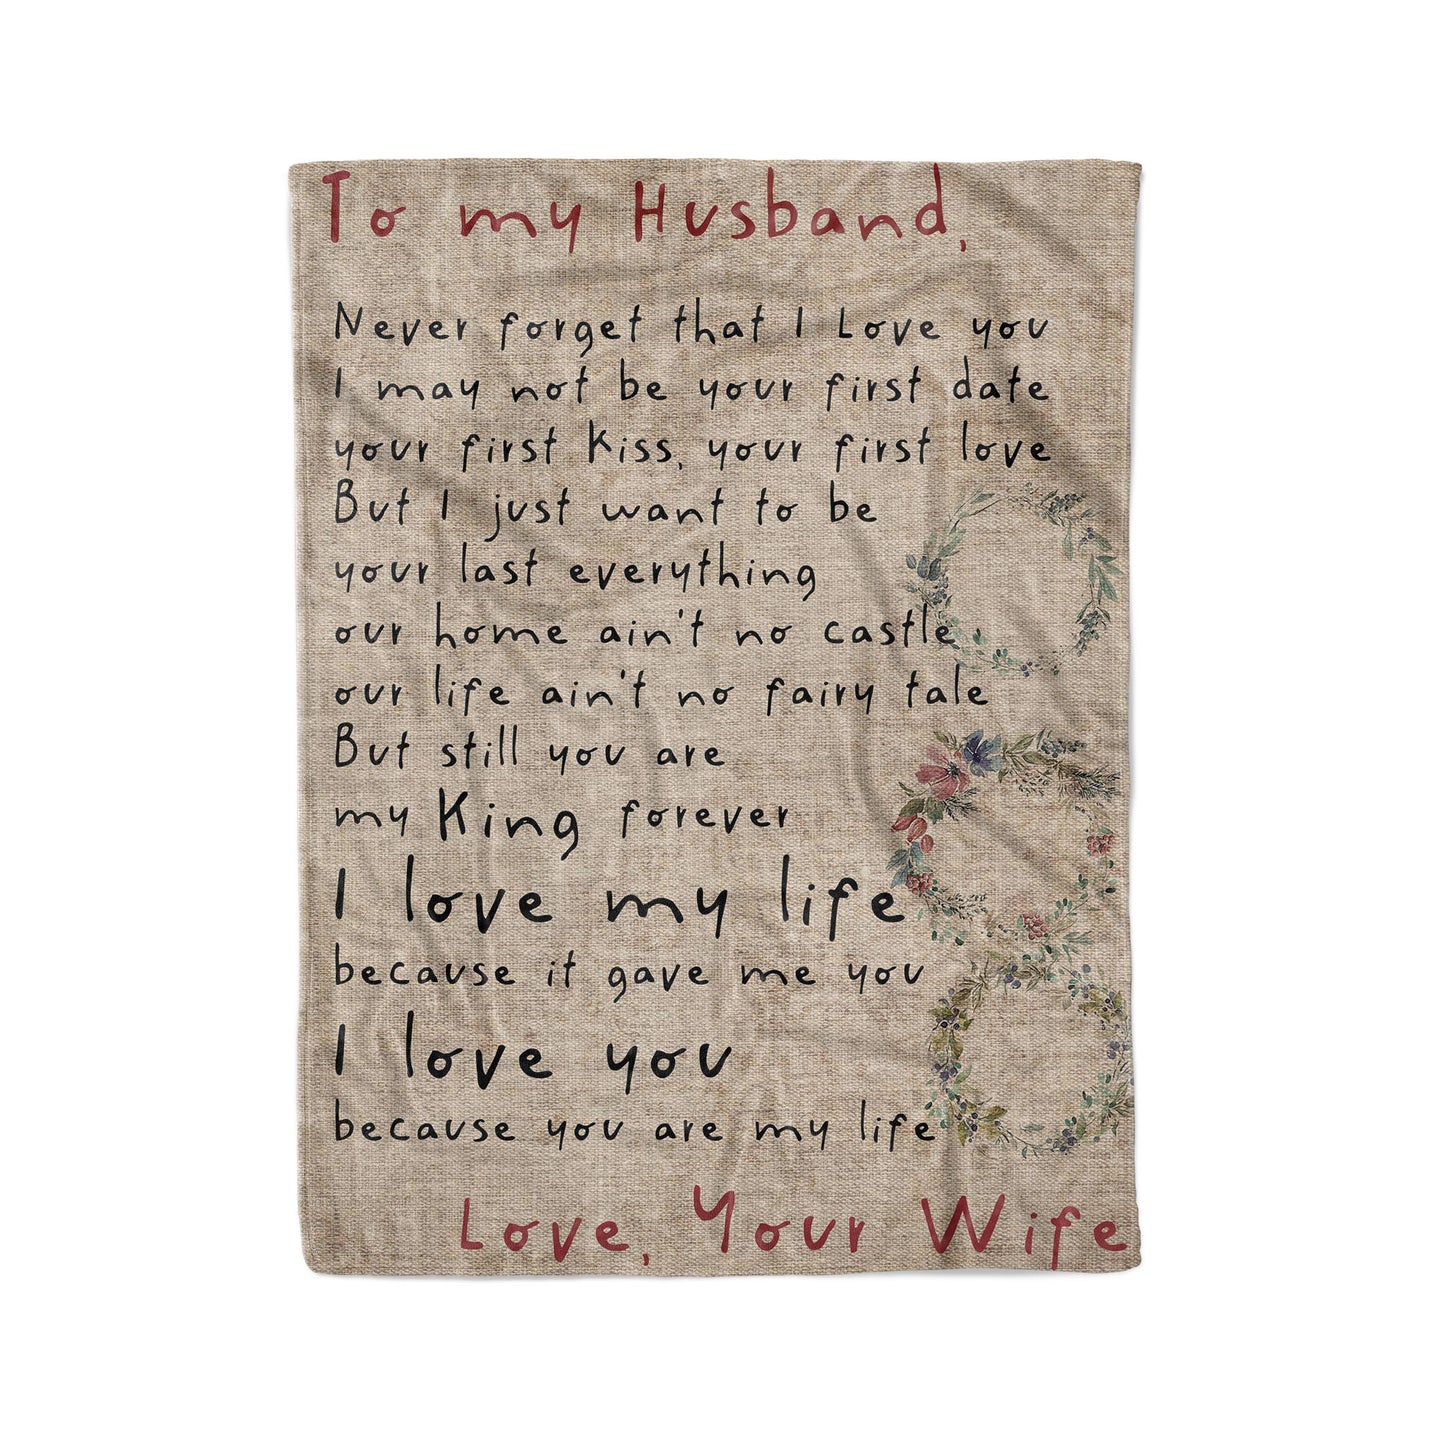 To my Husband,
Never forget that I Love you
I may not be your first date
your first kiss, your first love
But I just want to be
your last everything
our home ain't no castle
our life ain't no fairy tale
But still you are
my King forever
I love my life
because it gave me you
I love you
because you are my life
Love, Your Wife